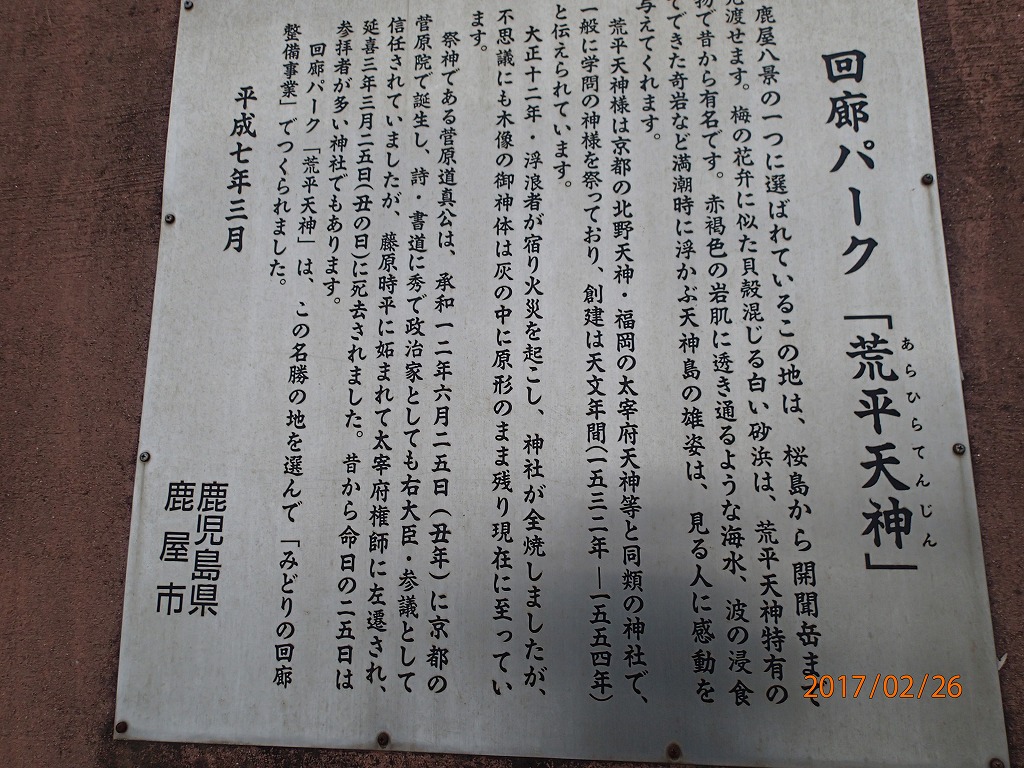 回廊パーク「荒平天神」
あらひらてんじん
鹿屋八景の一つに選ばれているこの地は、桜島から開聞岳ま、
渡せます。梅の花弁に似た貝殻混じる白い砂浜は、荒平天神特有の
物で昔から有名です。赤褐色の岩肌に透き通るような海水、波の浸食
てできた奇岩など満潮時に浮かぶ天神島の雄姿は、見る人に感動を
与えてくれます。
荒平天神様は京都の北野天神・福岡の太宰府天神等と同類の神社で、
一般に学問の神様を祭っており、創建は天文年間(一五三二年―一五五四年)
と伝えられています。
大正十二年・浮浪者が宿り火災を起こし、神社が全焼しましたが、
不思議にも木像の御神体は灰の中に原形のまま残り現在に至ってい
ます。
祭神である菅原道真公は、承和一二年六月二五日(丑年)に京都の
菅原院で誕生し、詩・書道に秀で政治家としても右大臣・参議として
信任されていましたが、藤原時平に妬まれて太宰府権師に左遷され、
延喜三年三月二五日(丑の日)に死去されました。昔から命日の二五日は
参拝者が多い神社でもあります。
回廊パーク「荒平天神」は、この名勝の地を選んで「みどりの回廊
整備事業」でつくられました。
平成七年三月
鹿児島県
鹿屋市
2017/02/26